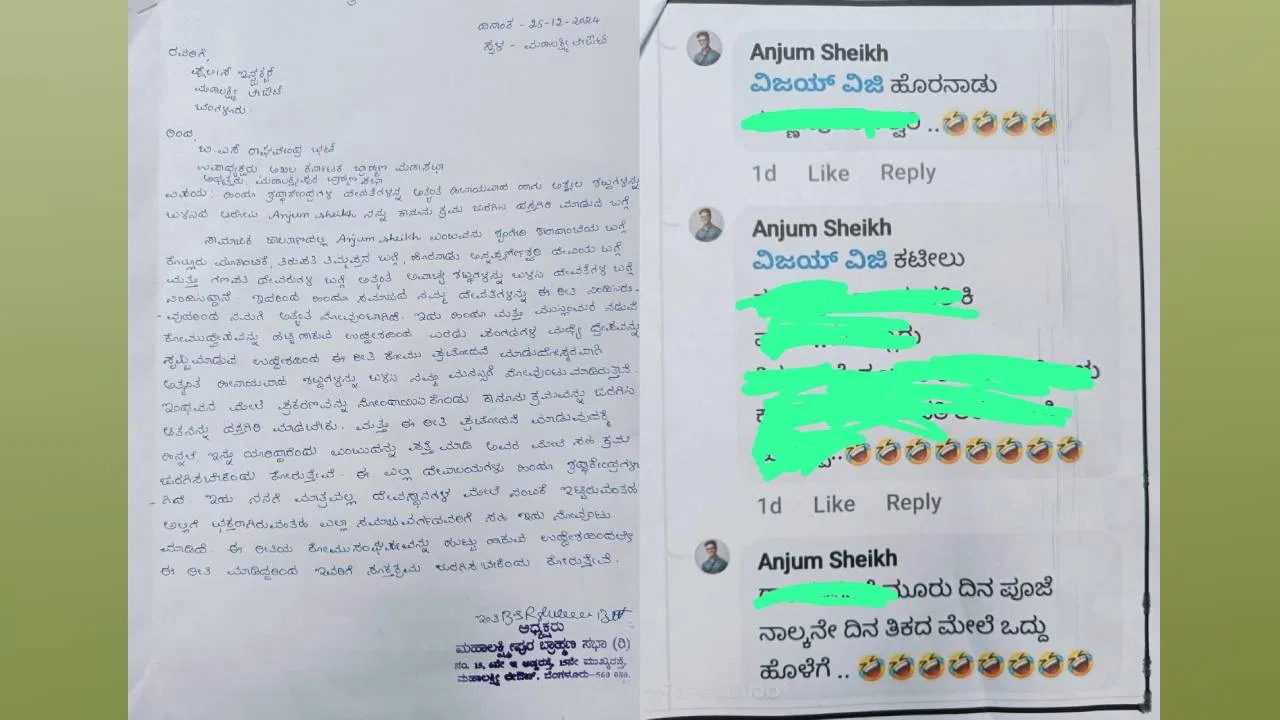 ದಿನಾಂಕ - 25-12-2024
ಸ್ಥಳ - ಮಹಾಲಕ್ಷ್ಮೀ ಲೇಔಟ್
ರವರಿಗೆ,
ಪೊಲೀಸ್ ಇನ್ಸ್ಪೆಕ್ಟರ್
ಮಹಾಲಕ್ಷ್ಮೀ ಲೇಔಟ್
ಬೆಂಗಳೂರು.
ಇಂದ,
ಬಿ.ಎಸ್ ರಾಘವೇಂದ್ರ ಭಟ್
ಉಪಾಧ್ಯಕ್ಷರು ಅಖಿಲ ಕರ್ನಾಟಕ ಬ್ರಾಹ್ಮಣ ಮಹಾಸಭಾ
ಅಧ್ಯಕ್ಷರು, ಮಹಾಲಕ್ಷ್ಮೀಪುರ ಬ್ರಾಹ್ಮಣ ಸಭಾ
ವಿಷಯ: ಹಿಂದೂ ಶ್ರದ್ಧಾಕೇಂದ್ರಗಳ ದೇವತೆಗಳನ್ನು ಅತ್ಯಂತ ಹೀನಾಯವಾದ ಹಾಗು ಅಶ್ಲೀಲ ಶಬ್ದಗಳನ್ನು
ಬಳಸಿದ ಆರೋಪಿ Anjum sheikh ನನ್ನು ಕಾನೂನು ಕ್ರಮ ಜರುಗಿಸಿ ದಸ್ತಗಿರಿ ಮಾಡುವ ಬಗ್ಗೆ
ಸಾಮಾಜಿಕ ಜಾಲತಾಣದಲ್ಲಿ Anjum sheikh ಎಂಬುವನು ಶೃಂಗೇರಿ ಶಾರದಾಂಬೆಯ ಬಗ್ಗೆ
ಕೊಲ್ಲೂರು ಮೂಕಾಂಬಿಕೆ, ತಿರುಪತಿ ತಿಮ್ಮಪ್ಪನ ಬಗ್ಗೆ, ಹೊರನಾಡು ಅನ್ನಪೂರ್ಣೇಶ್ವರಿ ದೇವಿಯ ಬಗ್ಗೆ
ಮತ್ತು ಗಣಪತಿ ದೇವರುಗಳ ಬಗ್ಗೆ ಅತ್ಯಂತ ಅವಾಚ್ಯ ಶಬ್ದಗಳನ್ನು ಬಳಸಿ ದೇವತೆಗಳ ಬಗ್ಗೆ
ನಿಂದಿಸಿದ್ದಾನೆ. ಇದರಿಂದ ಹಿಂದೂ ಸಮಾಜದ ನಮ್ಮ ದೇವತೆಗಳನ್ನು ಈ ರೀತಿ ನಿಂದಿಸಿರು-
-ವುದರಿಂದ ನಮಗೆ ಅತ್ಯಂತ ನೋವುಂಟಾಗಿದೆ. ಇದು ಹಿಂದೂ ಮತ್ತು ಮುಸ್ಲಿಂಮರ ನಡುವೆ
ಕೋಮುದ್ವೇಷವನ್ನು ಹುಟ್ಟಿ ಹಾಕುವ ಉದ್ದೇಶದಿಂದ ಎರಡು ಪಂಗಡಗಳ ಮಧ್ಯೆ ದ್ವೇಷವನ್ನು
ಸೃಷ್ಟಿಮಾಡುವ ಉದ್ದೇಶದಿಂದ ಈ ರೀತಿ ಕೋಮು ಪ್ರಚೋದನೆ
ಅತ್ಯಂತ ಹೀನಾಯವಾದ ಶಬ್ದಗಳನ್ನು ಬಳಸಿ ನಮ್ಮ ಮನಸ್ಸಿಗೆ ನೋವುಂಟು ಮಾಡಿರುತ್ತಾನೆ.
ಇಂಥವನ ಮೇಲೆ ಪ್ರಕರಣವನ್ನು ನೋಂದಾಯಿಸಿಕೊಂಡು ಕಾನೂನು ಕ್ರಮವನ್ನು ಜರುಗಿಸಿ
ಆತನನ್ನು ದಸ್ತಗಿರಿ ಮಾಡಬೇಕು. ಮತ್ತು ಈ ರೀತಿ ಪ್ರಚೋದನೆ ಮಾಡುವುದಕ್ಕೆ
ಹಿನ್ನಲೆ ಇನ್ನು ಯಾರಿದ್ದಾರೆಂದು ಎಂಬುದನ್ನು ಪತ್ತೆ ಮಾಡಿ ಅವರ ಮೇಲೆ ಸಹ ಕ್ರಮ
ಜರುಗಿಸಬೇಕೆಂದು ಕೋರುತ್ತೇವೆ. ಈ ಎಲ್ಲಾ ದೇವಾಲಯಗಳು ಹಿಂದೂ ಶ್ರದ್ಧಾಕೇಂದ್ರಗಳಾ
-ಗಿವೆ. ಇದು ನನಗೆ ಮಾತ್ರವಲ್ಲ ದೇವಸ್ಥಾನಗಳ ಮೇಲೆ ನಂಬಿಕೆ ಇಟ್ಟಿರುವಂತಹ
ಅಲ್ಲಿಗೆ ಭಕ್ತರಾಗಿರುವಂತಹ ಎಲ್ಲಾ ಸಮಾಜವರ್ಗದವರಿಗೆ ಸಹ ಇದು ನೋವುಂಟು
ಮಾಡಿದೆ. ಈ ರೀತಿಯ ಕೋಮುಸಂಘರ್ಷವನ್ನು ಹುಟ್ಟು ಹಾಕುವ ಉದ್ದೇಶದಿಂದಲೇ
ಈ ರೀತಿ ಮಾಡಿದ್ದರಿಂದ ಇವರಿಗೆ ಸೂಕ್ತಕ್ರಮ ಜರುಗಿಸಬೇಕೆಂದು ಕೋರುತ್ತೇವೆ.
ಇಂತಿ
ಅಧ್ಯಕ್ಷರು
ಮಹಾಲಕ್ಷ್ಮೀಪುರ ಬ್ರಾಹ್ಮಣ ಸಭಾ (ರಿ)
ನಂ. 15, 6ನೇ ಇ ಅಡ್ಡರಸ್ತೆ, 15ನೇ ಮುಖ್ಯರಸ್ತೆ,
ಮಹಾಲಕ್ಷ್ಮೀ ಲೇಔಟ್, ಬೆಂಗಳೂರು-560 086.
Anjum Sheikh
ವಿಜಯ್ ವಿಜಿ ಹೊರನಾಡು
.. 🤣🤣🤣🤣
1d Like Reply
Anjum Sheikh
ವಿಜಯ್ ವಿಜಿ ಕಟೀಲು
.. 🤣🤣🤣🤣🤣🤣🤣🤣
1d Like Reply
Anjum Sheikh
ಮೂರು ದಿನ ಪೂಜೆ
ನಾಲ್ಕನೇ ದಿನ ತಿಕದ ಮೇಲೆ ಒದ್ದು
ಹೊಳೆಗೆ .. 🤣🤣🤣🤣🤣🤣🤣🤣